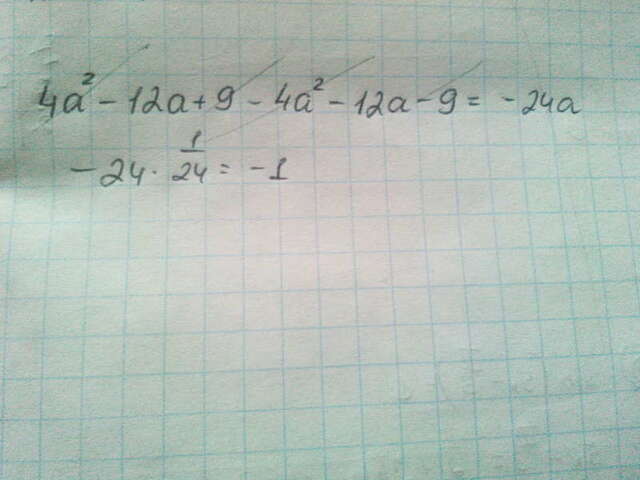 4a² - 12a + 9 - 4a² - 12a - 9 = -24a
-24 · 1/24 = -1